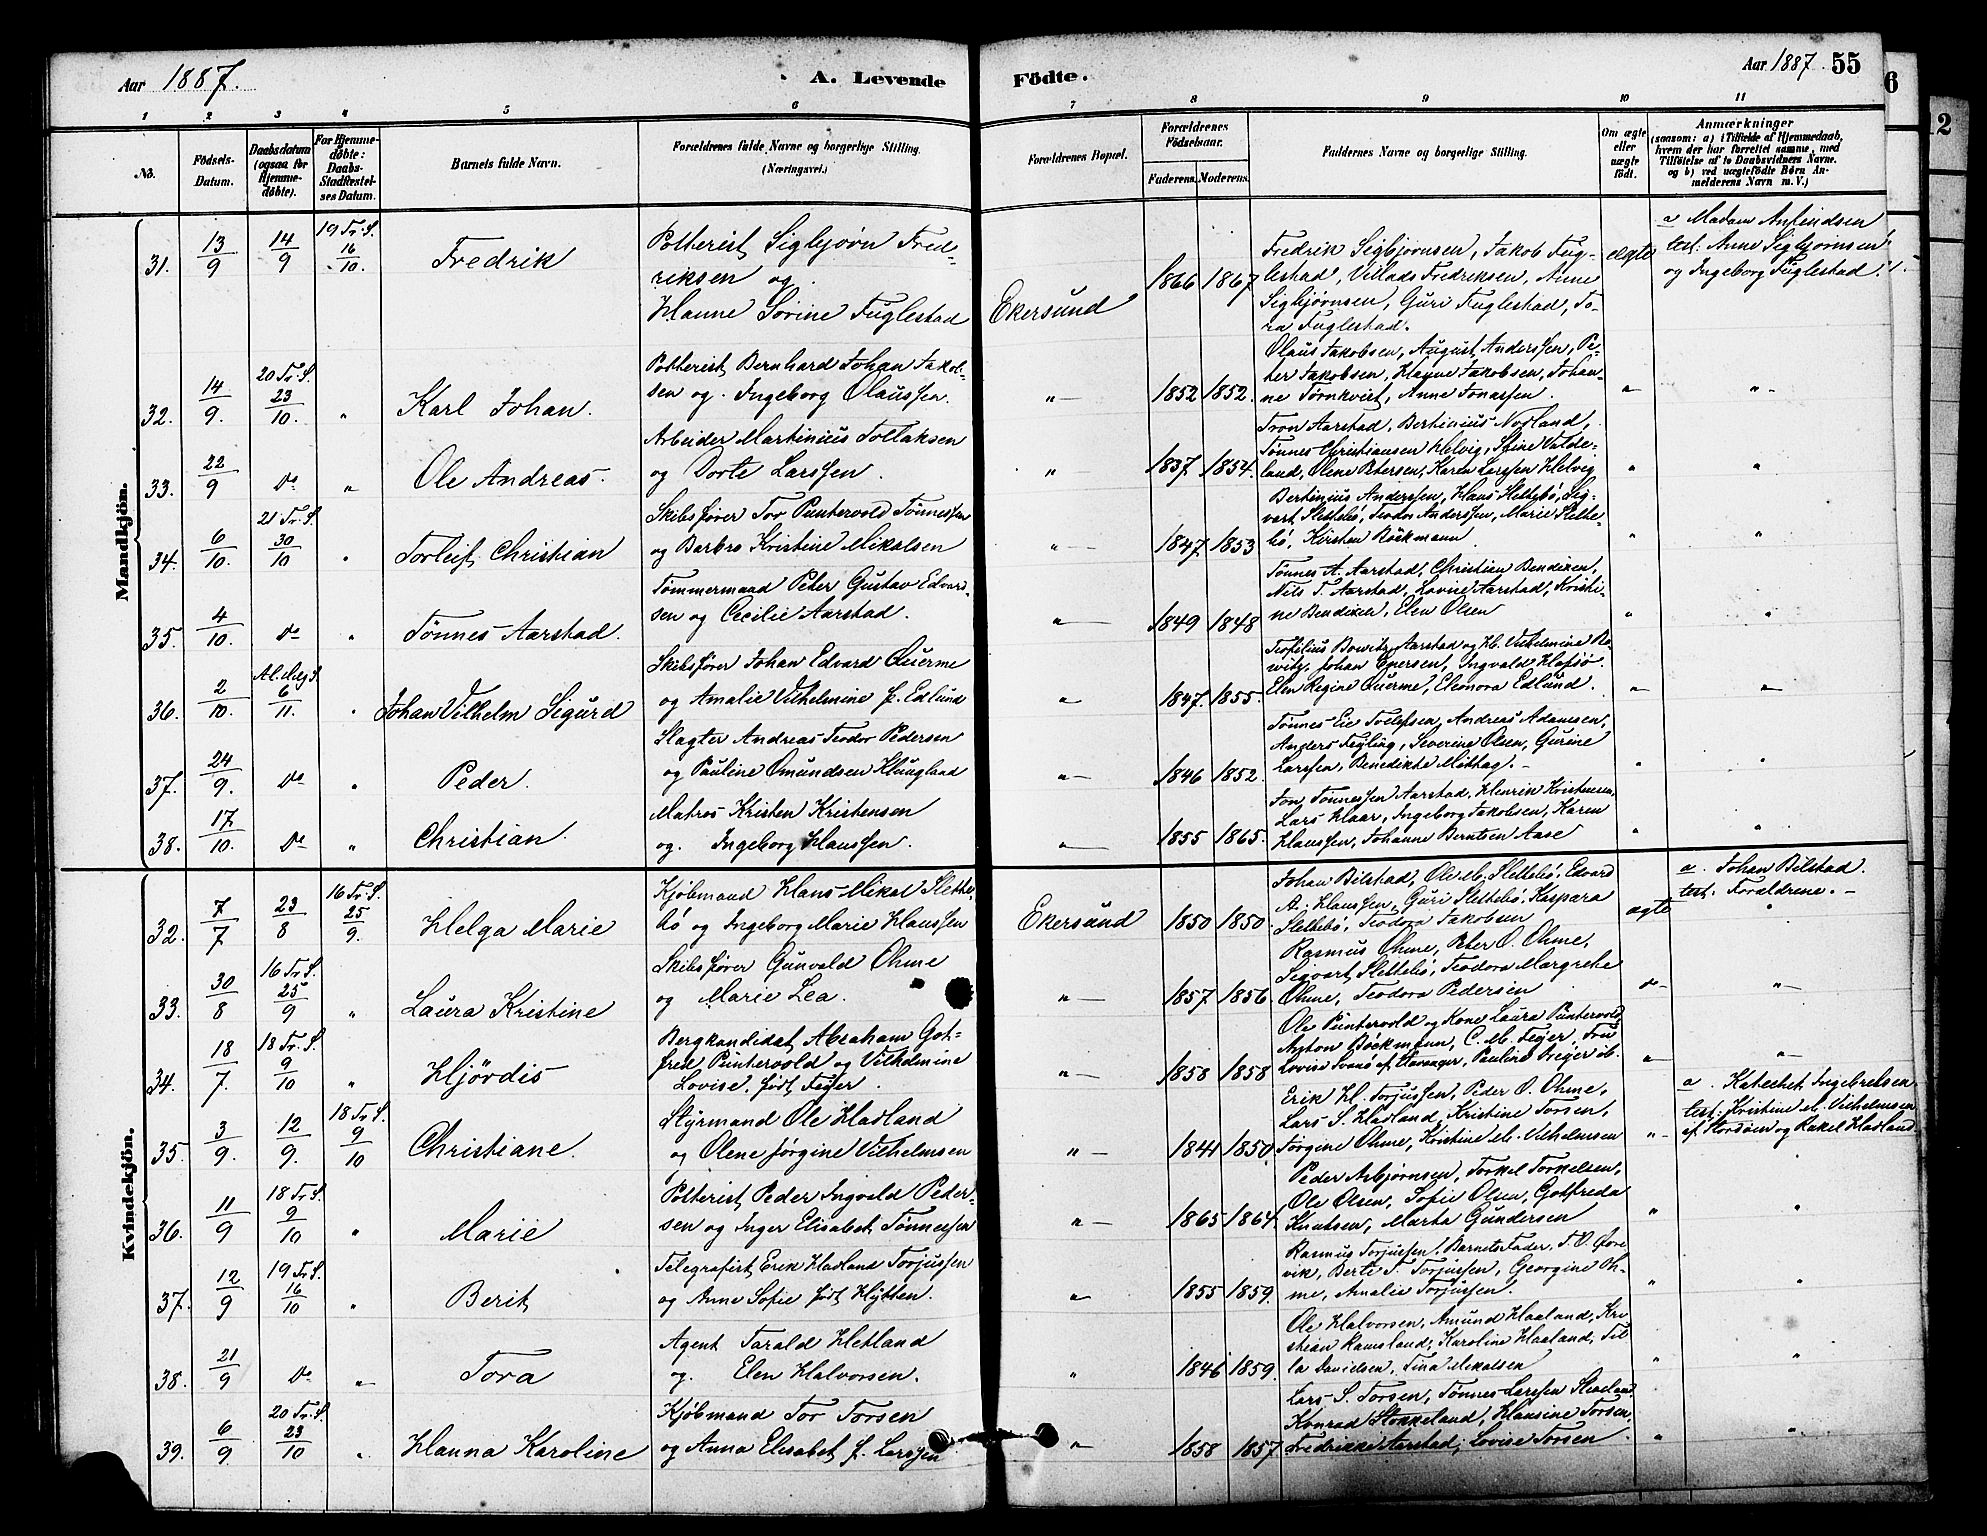 Aar 1887.
A. Levende Födte.
Aar 1887. 55
6
12
1 2 3 4 5 6 7 8 9 10 11
No.
Födsels-Datum.
Daabsdatum (ogsaa for Hjemmedøbte).
For Hjemmedøbte: Daabs-Stadfæstelses Datum.
Barnets fulde Navn.
Forældrenes fulde Navne og borgerlige Stilling.
(Næringsvei.)
Forældrenes Bopæl.
Forældrenes Födselsaar.
Faderens. Moderens.
Faddernes Navne og borgerlige Stilling.
Om ægte eller uægte födt.
Anmærkninger
(saasom: a) i Tilfælde af Hjemmedaab, hvem der har forrettet samme, med Tilföielse af to Daabsvidners Navne. og b) ved uægtefödte Børn Anmelderens Navn m. V.)
Mandkjön.
31. 13/9 14/9 19 Tr. S. 16/10. Fredrik
Potterist Sigbjørn Fredriksen og
Hanne Sørine Fuglestad
Ekersund 1866 1867
Fredrik Sigbjørnsen, Jakob Fuglestad, Villads Fredriksen, Anne
Sigbjørnsen, Guri Fuglestad, Tora Fuglestad.
ægte
a Madam Anfindsen
test: Anne Sigbjørnsen
og Ingeborg Fuglestad.
32. 14/9. 20 Tr. S. 23/10. " Karl Johan.
Potterist Bernhard Johan Jakobsen og Ingeborg Olaussen.
" 1852 1852.
Olaus Jakobsen, August Anderssen, Peter Jakobsen, Hanne Jakobsen, Johanne Törnkvist, Anne Jonassen.
" "
33. 22/9 do " Ole Andreas.
Arbeider Martinius Tollaksen
og Dorte Larssen.
" 1837 1854.
Tron Aarstad, Bertinius Norland,
Tønnes Christiansen Helvig, Stine Valdeland, Olene Petersen, Karen Larssen Helvig
" "
34. 6/10. 21 Tr. S. 30/10 " Torleif Christian
Skibsfører Tor Puntervold Tønnessen
og Barbro Kristine Mikalsen
" 1847 1853
Bertinius Anderssen, Hans Slettebö, Sigvart Slettebö, Teodor Anderssen, Marie Slettebö, Kirsten Böckmann
" "
35. 4/10. do " Tønnes Aarstad.
Tømmermand Peter Gustav Edvardsen og Cecilie Aarstad.
" 1849 1848
Tønnes A. Aarstad, Christian Bendixen,
Nils T. Aarstad, Lovise Aarstad, Kristine Bendixen, Elen Olsen
" "
36. 2/10. Al. Helg S. 6/11. " Johan Vilhelm Sigurd
Skibsfører Johan Edvard Querme
og Amalie Vilhelmine f. Edlund
" 1847. 1855.
Teofilius Bowitz Aarstad og H. Vilhelmine Bowitz, Johan Ekersen, Ingvald Hafsö
Elen Regine Querme, Eleonora Edlund.
" "
37. 24/9. do " Peder.
Slagter Andreas Teodor Pedersen
og Pauline Omundsen Klungland
" 1846 1852.
Tønnes Eie Tollefsen, Andreas Adamsen,
Anders Fegling, Severine Olsen, Gurine
Larssen, Benedikte Mittag.
" "
38. 17/10. do " Christian.
Matros Kristen Kristensen
og Ingeborg Hanssen.
" 1855 1865.
Jon Tønnessen Aarstad, Henrik Kristensen,
Lars Haar, Ingeborg Jakobsen, Karen
Hanssen, Johanne Berntsen Aase
" "
Kvindekjön.
32. 7/7 23/8 16 Tr. S. 25/9. Helga Marie
Kjøbmand Hans Mikal Slettebö og Ingeborg Marie Hanssen
Ekersund 1850 1850.
Johan Bilstad, Ole M. Slettebö, Edvard
A. Hanssen, Guri Slettebö, Kaspara
Slettebö, Teodora Jakobsen
ægte
a. Johan Bilstad.
test: Forældrene.
33. 30/8 16 Tr. S. 25/9 " Laura Kristine
Skibsfører Gunvald Ohme
og Marie Lea.
" 1857 1856.
Rasmus Ohme, Peter O. Ohme,
Sigvart Slettebö, Teodora Margrethe
Ohme, Teodora Pedersen
do "
34. 18/7. 18 Tr. S. 9/10 " Hjördis
Bergkandidat Abraham Gotfred Puntervold og Vilhelmine
Lovise, født Feyer.
" 1858 1858
Ole Puntervold og Kone Laura Puntervold
Anton Böckmann, C. M. Feyer, Fru
Lovise Svanö af Stavanger, Pauline Feyer
" "
35. 3/9. 12/9. 18 Tr. S. 9/10 Christiane.
Styrmand Ole Hadland
og Olene Jørgine Vilhelmsen
" 1841 1850.
Erik H. Torjussen, Peder O. Ohme,
Lars S. Hadland, Kristine Torsen,
Jørgine Ohme, Kristine M. Vilhelmsen
"
a. Kateket Ingebretsen
test: Kristine M. Vilhelmsen
af Stordøen og Rakel Hadland
36. 11/9 18 Tr. S. 9/10 " Marie
Potterist Peder Ingvald Pedersen og Inger Elisabet Tønnessen
" 1865 1864.
Peder Asbjørnsen, Torkel Torkelsen,
Ole Olsen, Sofie Olsen, Gotfreda
Knutsen, Marta Gundersen
" "
37. 12/9 19 Tr. S. 16/10 " Berit
Telegrafist Erik Hadland Torjussen
og Anne Sofie født Hytten.
" 1855 1859.
Rasmus Torjussen, Barnets Fader, T. O. Øvrevik, Berte T. Torjussen, Georgine Ohme, Amalie Torjussen.
" "
38. 21/9 do " Tora
Agent Tarald Hetland
og Elen Halvorsen.
" 1846 1859.
Ole Halvorsen, Amund Haaland, Kristian Ramsland, Karoline Haaland, Tilla Davidsen, Tina Mikalsen
" "
39. 6/9 20 Tr. S. 23/10 " Hanna Karoline
Kjøbmand Tor Torsen
og Anna Elisabet f. Larssen
" 1858 1857.
Lars S. Torsen, Tønnes Larssen
Konrad Stokkeland, Hansine Torsen,
Fredrikke Aarstad, Lovise Torsen
" "